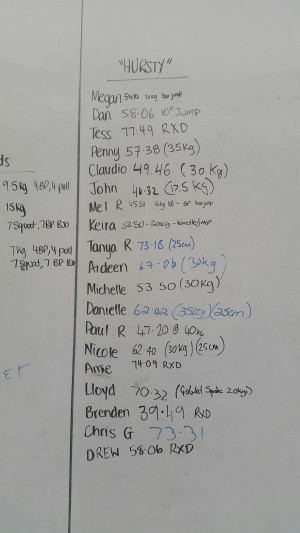 "HURSTY"
Megan 10kg box jump
Dan 58.06 10" JUMP
Tess 77.49 RXD
Penny 57.38 (35Kg)
Claudio 49.46 (30Kg)
John 46.32 (17.5 Kg)
Mel R 45.50
Keira 30kg
Tanya R 73.18 (25cm)
Ardeen 67.06 (30kg)
Michelle 53 50 (30Kg)
Danielle 62.42 (35kg) (25cm)
Paul R 47.20 @ 40kg
Nicole 62.40 (30Kg) (25cm)
Anne 74.09 RXD
Lloyd 70.32 (Goblet Squat 20kg)
Brenden 39.49 RXD
Chris G 73.31
DREW 58.06 RXD
ds
9.5kg 4BP, 4 pull
15Kg
7 Squat, 7BP B20
7kg 4BP, 4 pull
7 Squat, 7 BP B20
ET